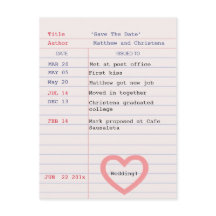 Title 'Save The Date'
Author Matthew and Christena
DATE ISSUED TO
MAR 20 Met at post office
MAY 05 First kiss
May 20 Matthew got new job
JUL 14 Moved in together
DEC 13 Christena graduated
college
FEB 14 Mark proposed at Cafe
Sausaleta
JUN 22 201x Wedding!